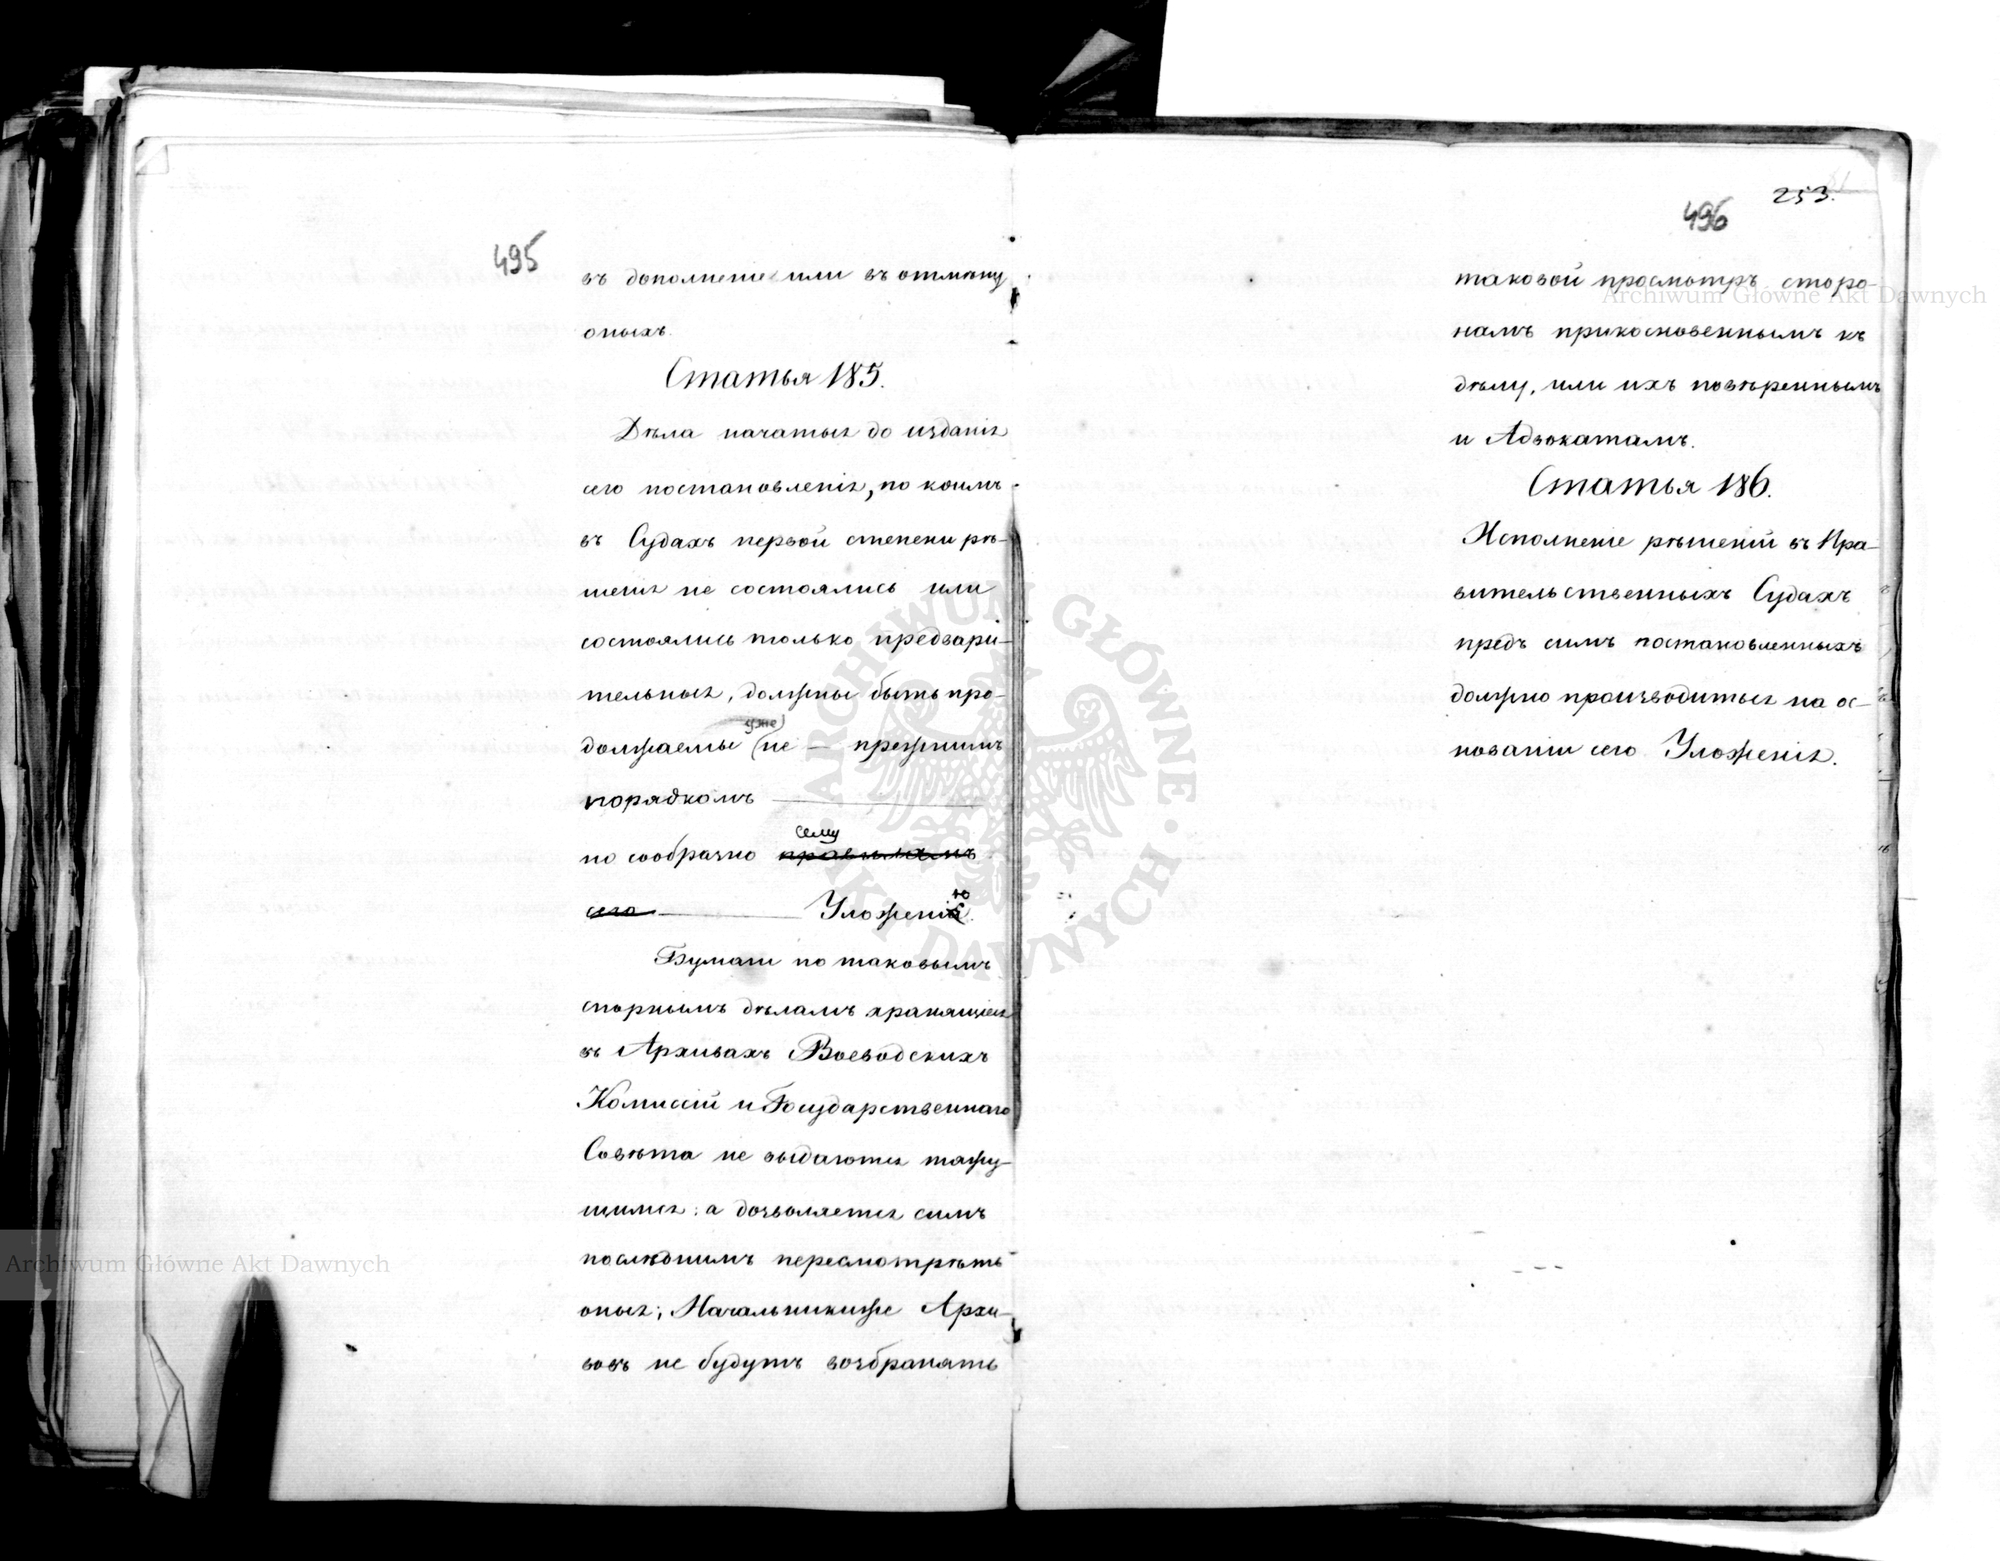 495
въ дополненіе или въ отмѣну
оныхъ.
Статья 185.
Дѣла начатыя до изданія
сего постановленія, по коимъ
въ Судахъ первой степени рѣ-
шенія не состоялись или
состоялись только предвари-
тельныя, должны быть про-
должаемы уже не — прежнимъ
порядкомъ
но сообразно правиламъ сему
сего Уложенію.
Бумаги по таковымъ
спорнымъ дѣламъ хранящіяся
въ Архивахъ Воеводскихъ
Комиссій и Государственнаго
Совѣта не выдаются тяжу-
щимся: а дозволяется симъ
послѣднимъ пересмотрѣть
оныя; Начальникиже Архи-
вовъ не будутъ возбранять
253.
496
таковой просмотръ сторо-
намъ прикосновеннымъ къ
дѣлу, или ихъ повѣреннымъ
и Адвокатамъ.
Статья 186.
Исполненіе рѣшеній въ Пра-
вительственныхъ Судахъ
предъ симъ постановленныхъ
должно производиться на ос-
нованіи сего Уложенія.
Archiwum Główne Akt Dawnych
Archiwum Główne Akt Dawnych
ARCHIWUM GŁÓWNE AKT DAWNYCH